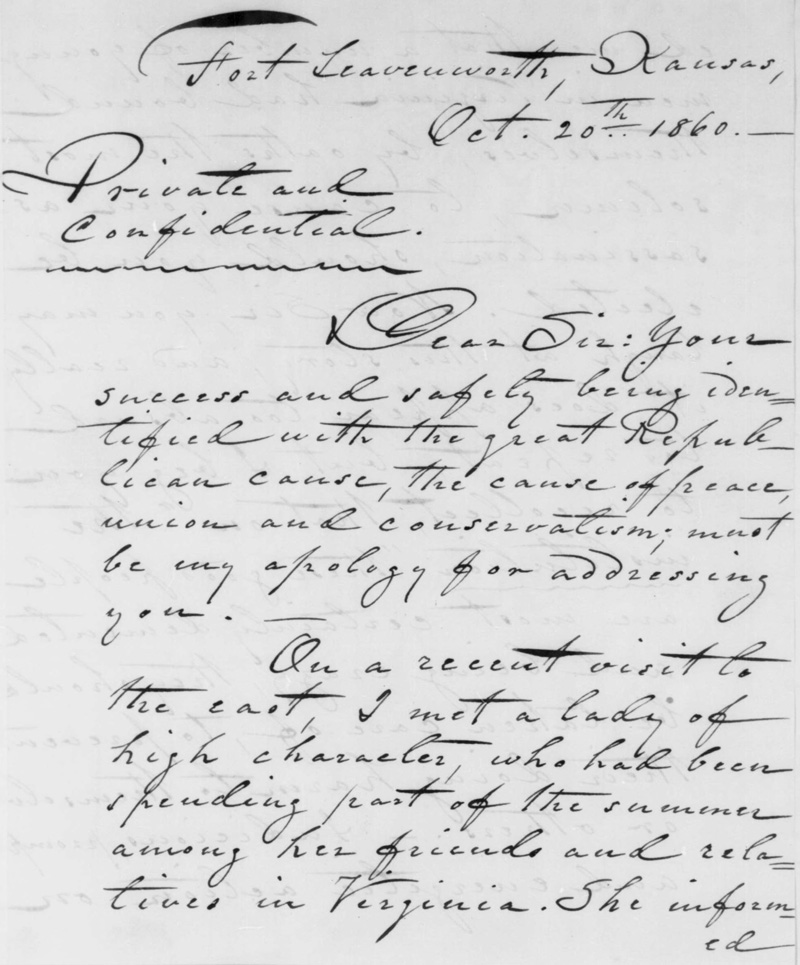 Fort Leavenworth, Kansas,
Oct. 20th 1860. —
Private and
Confidential.
Dear Sir: Your
success and safety being iden=
tified with the great Repub-
lican cause, the cause of peace,
union and conservatism; must
be my apology for addressing
you. —
On a recent visit to
the east, I met a lady of
high character, who had been
spending part of the summer
among her friends and rela=
tives in Virginia. She inform=
ed